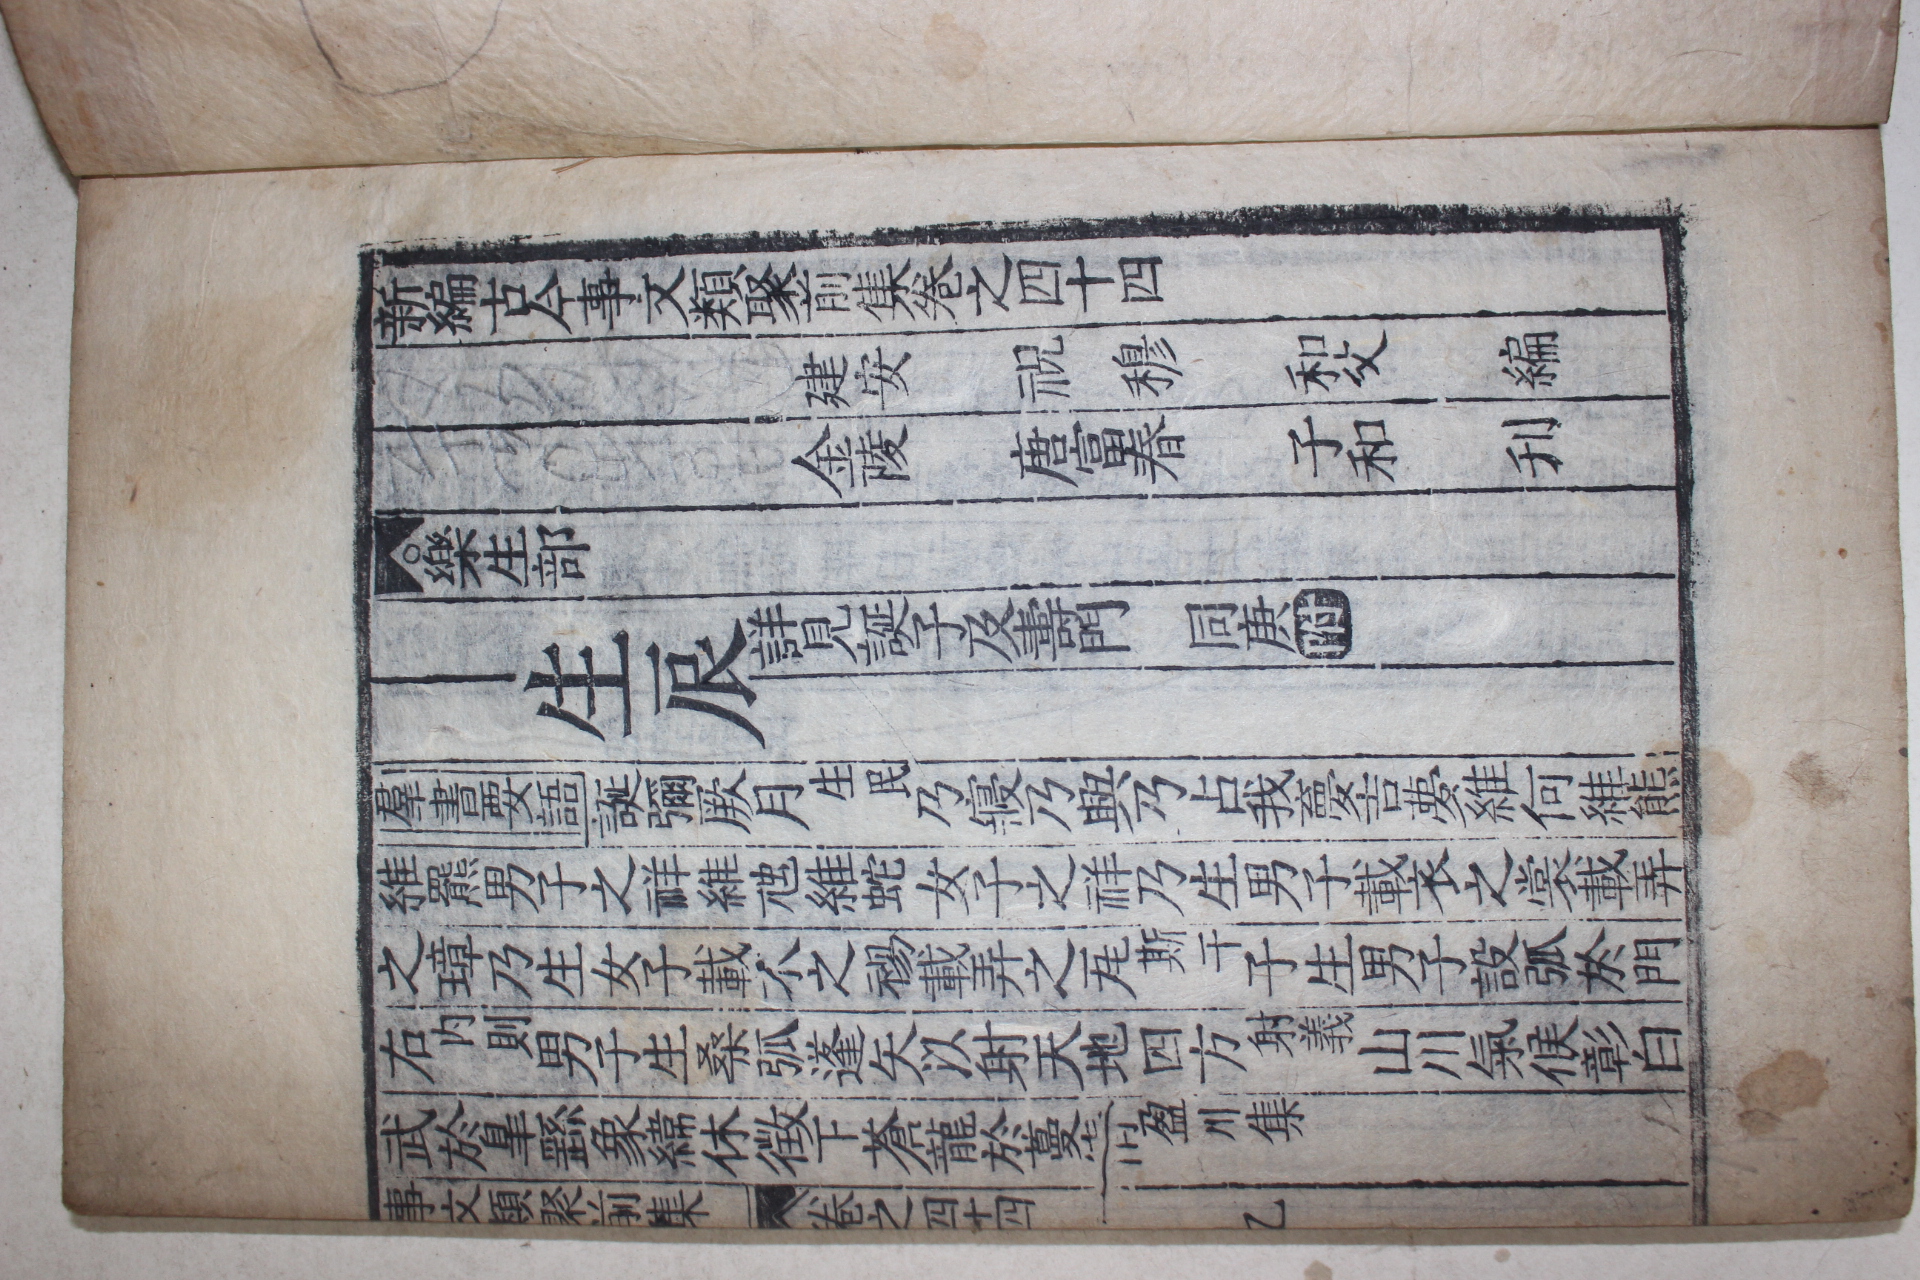 新編古今事文類聚前集卷之四十四
建安 祝 穆 和父 編
金陵 唐富春 子和 刋
○樂生部
生辰 詳見誕子及壽門 同庚附
羣書要語 誕彌厥月 生民 乃寢乃興乃占我夢吉夢維何維熊
維羆男子之祥維虺維蛇女子之祥乃生男子載衣之裳載弄
之璋乃生女子載衣之裼載弄之瓦 斯干 子生男子設弧於門
右 內則 男子生桑弧蓬矢以射天地四方 射義 山川氣候彰白
武於皐繇象緯休徵下蒼龍於蔓 盈川集
事文類聚前集 卷之四十四